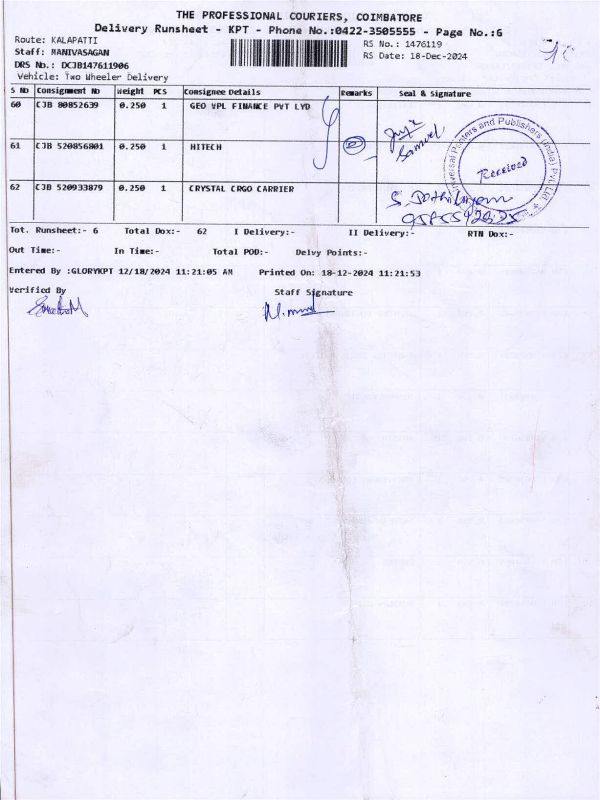 THE PROFESSIONAL COURIERS, COIMBATORE
Delivery Runsheet - KPT - Phone No.:0422-3505555 - Page No.:6
Route: KALAPATTI
RS No.: 1476119
Staff: MANIVASAGAN
RS Date: 18-Dec-2024
DRS No.: DCJB147611906
Vehicle: Two Wheeler Delivery
S No Consignment No Weight PCS Consignee Details Remarks Seal & Signature
60 CJB 80852639 0.250 1 GEO VPL FINANCE PVT LYD
Samuel
61 CJB 520856801 0.250 1 HITECH
Printers and Publishers (India) Pvt. Ltd.
Received
62 CJB 520933879 0.250 1 CRYSTAL CRGO CARRIER
Tot. Runsheet:- 6 Total Dox:- 62 I Delivery:- II Delivery:- RTN Dox:-
Out Time:- In Time:- Total POD:- Delvy Points:-
Entered By :GLORYKPT 12/18/2024 11:21:05 AM Printed On: 18-12-2024 11:21:53
Verified By Staff Signature